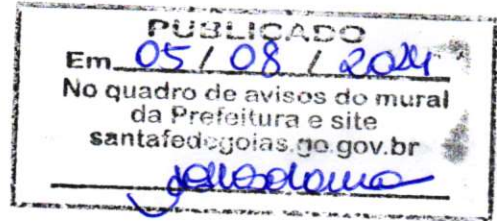 PUBLICADO
Em 05 / 08 / 2024
No quadro de avisos do mural
da Prefeitura e site
santafedegoias.go.gov.br